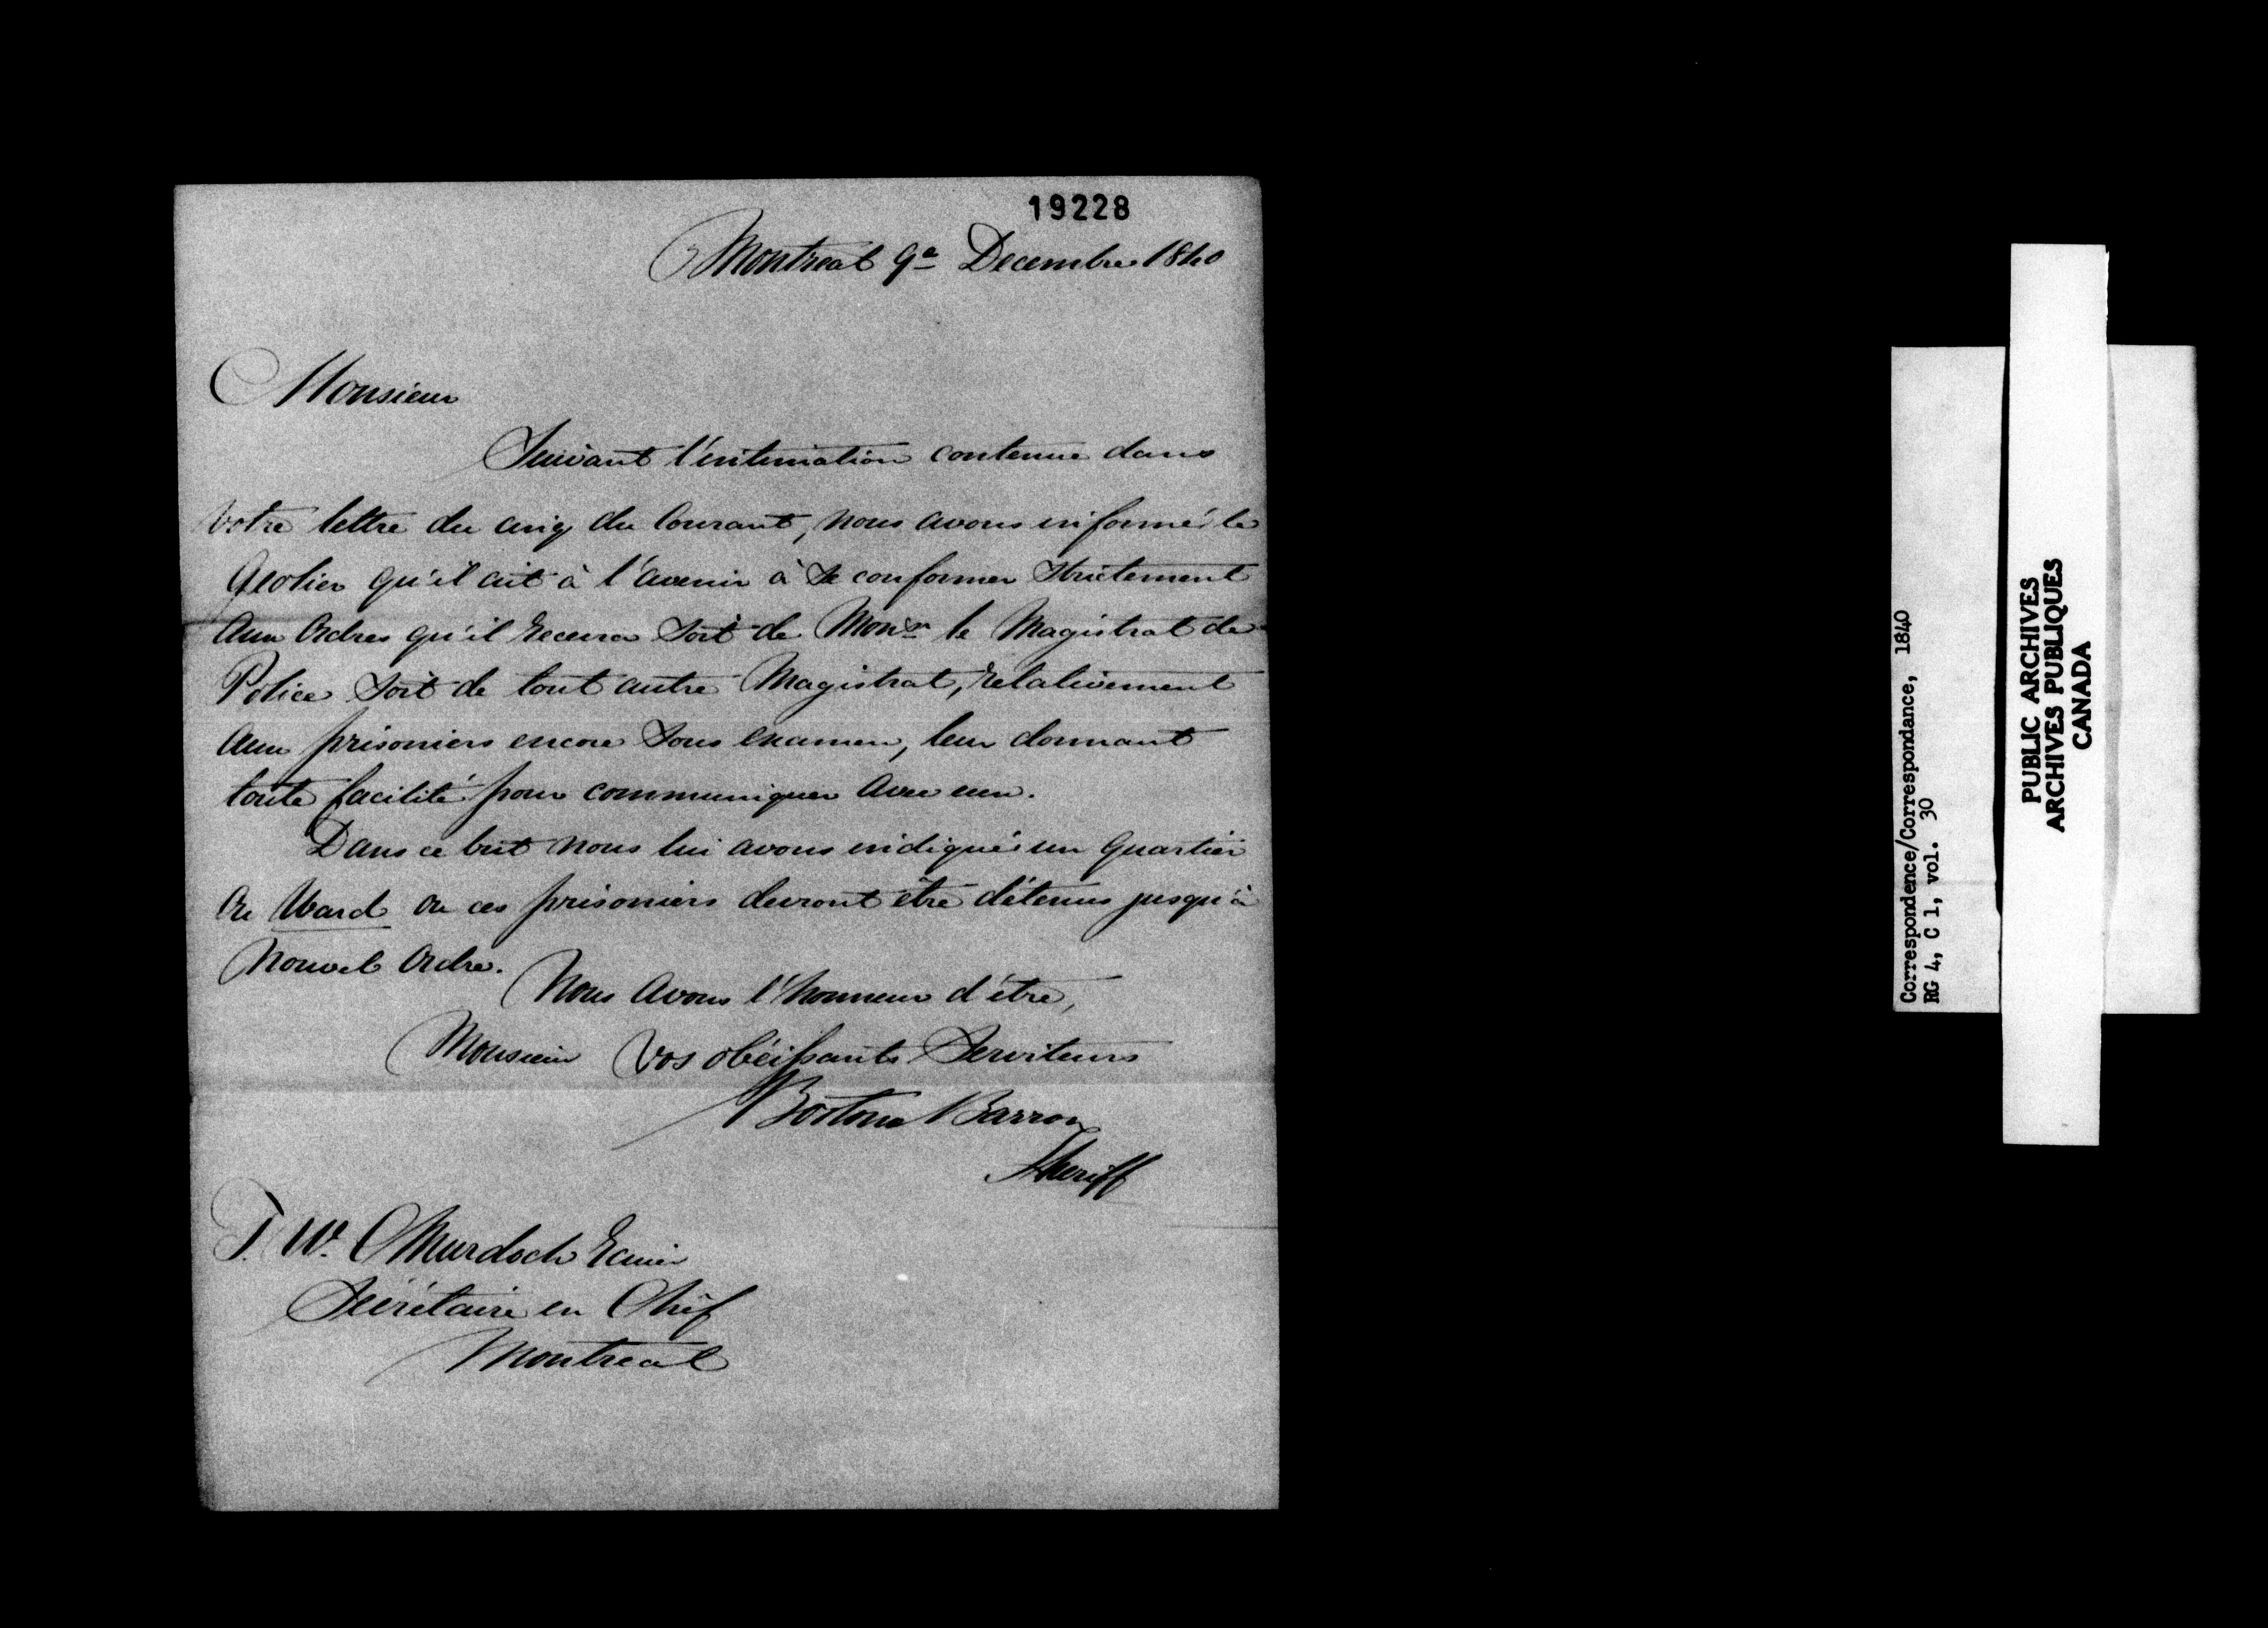 19228
Montreal 9e Decembre 1840
Monsieur
Suivant l'intimation contenue dans
votre lettre du cinq du Courant, nous avons informé le
Geolier qu'il ait à l'avenir à Se conformer Strictement
aux Ordres qu'il recevra Soit de Monsr le Magistrat de
Police Soit de tout autre Magistrat, relativement
aux prisoniers encore Sous examen, leur donnant
toute facilité pour communiquer avec eux.
Dans ce but nous lui avons indiqué un Quartier
ou Ward ou ces prisoniers devront être détenus jusqu'à
Nouvel Ordre.
Nous avons l'honneur d'être,
Monsieur Vos obéissants Serviteurs
Boston Barron
Sheriff
T. W. C. Murdoch Ecuier
Sécrétaire en Chef
Montreal
Correspondence/Correspondance, 1840
RG 4, C 1, vol. 30
PUBLIC ARCHIVES
ARCHIVES PUBLIQUES
CANADA